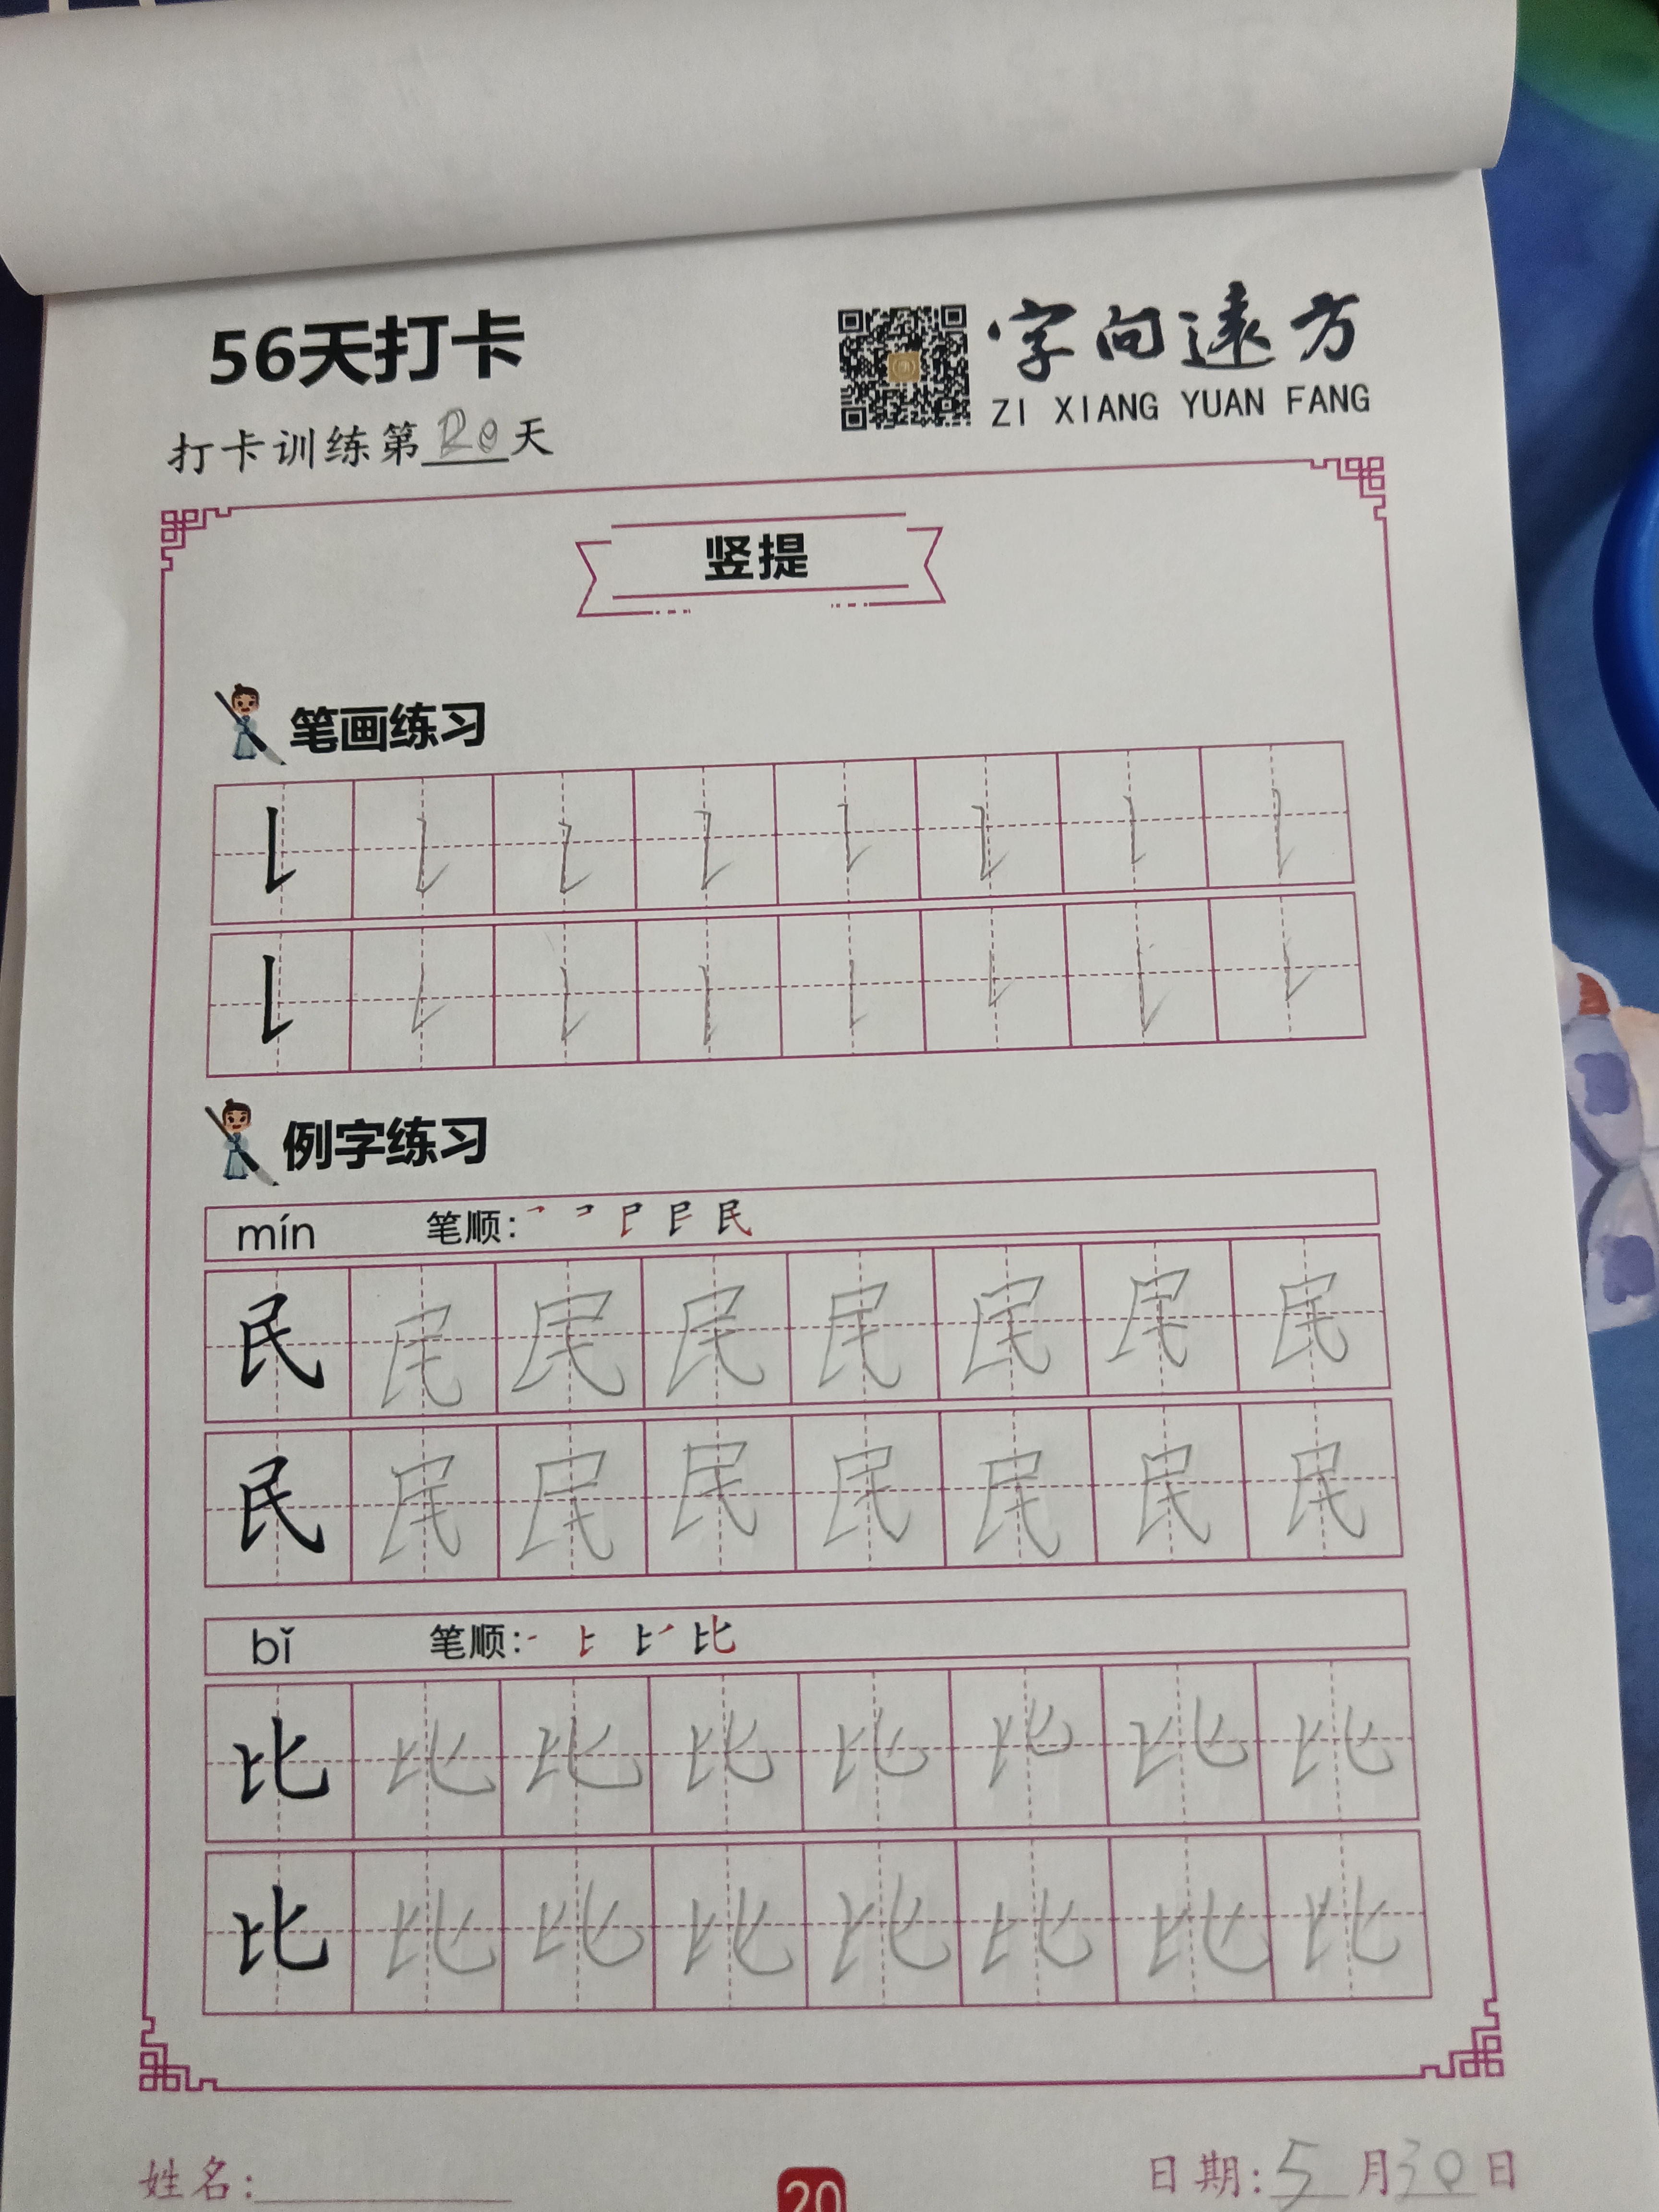 56天打卡
字向遠方
ZI XIANG YUAN FANG
打卡训练第20天
竖提
笔画练习
例字练习
mín 笔顺: 民
民 民 民 民 民 民 民 民
民 民 民 民 民 民 民 民
bǐ 笔顺: 比
比 比 比 比 比 比 比 比
比 比 比 比 比 比 比 比
姓名:
20
日期: 5 月 30 日